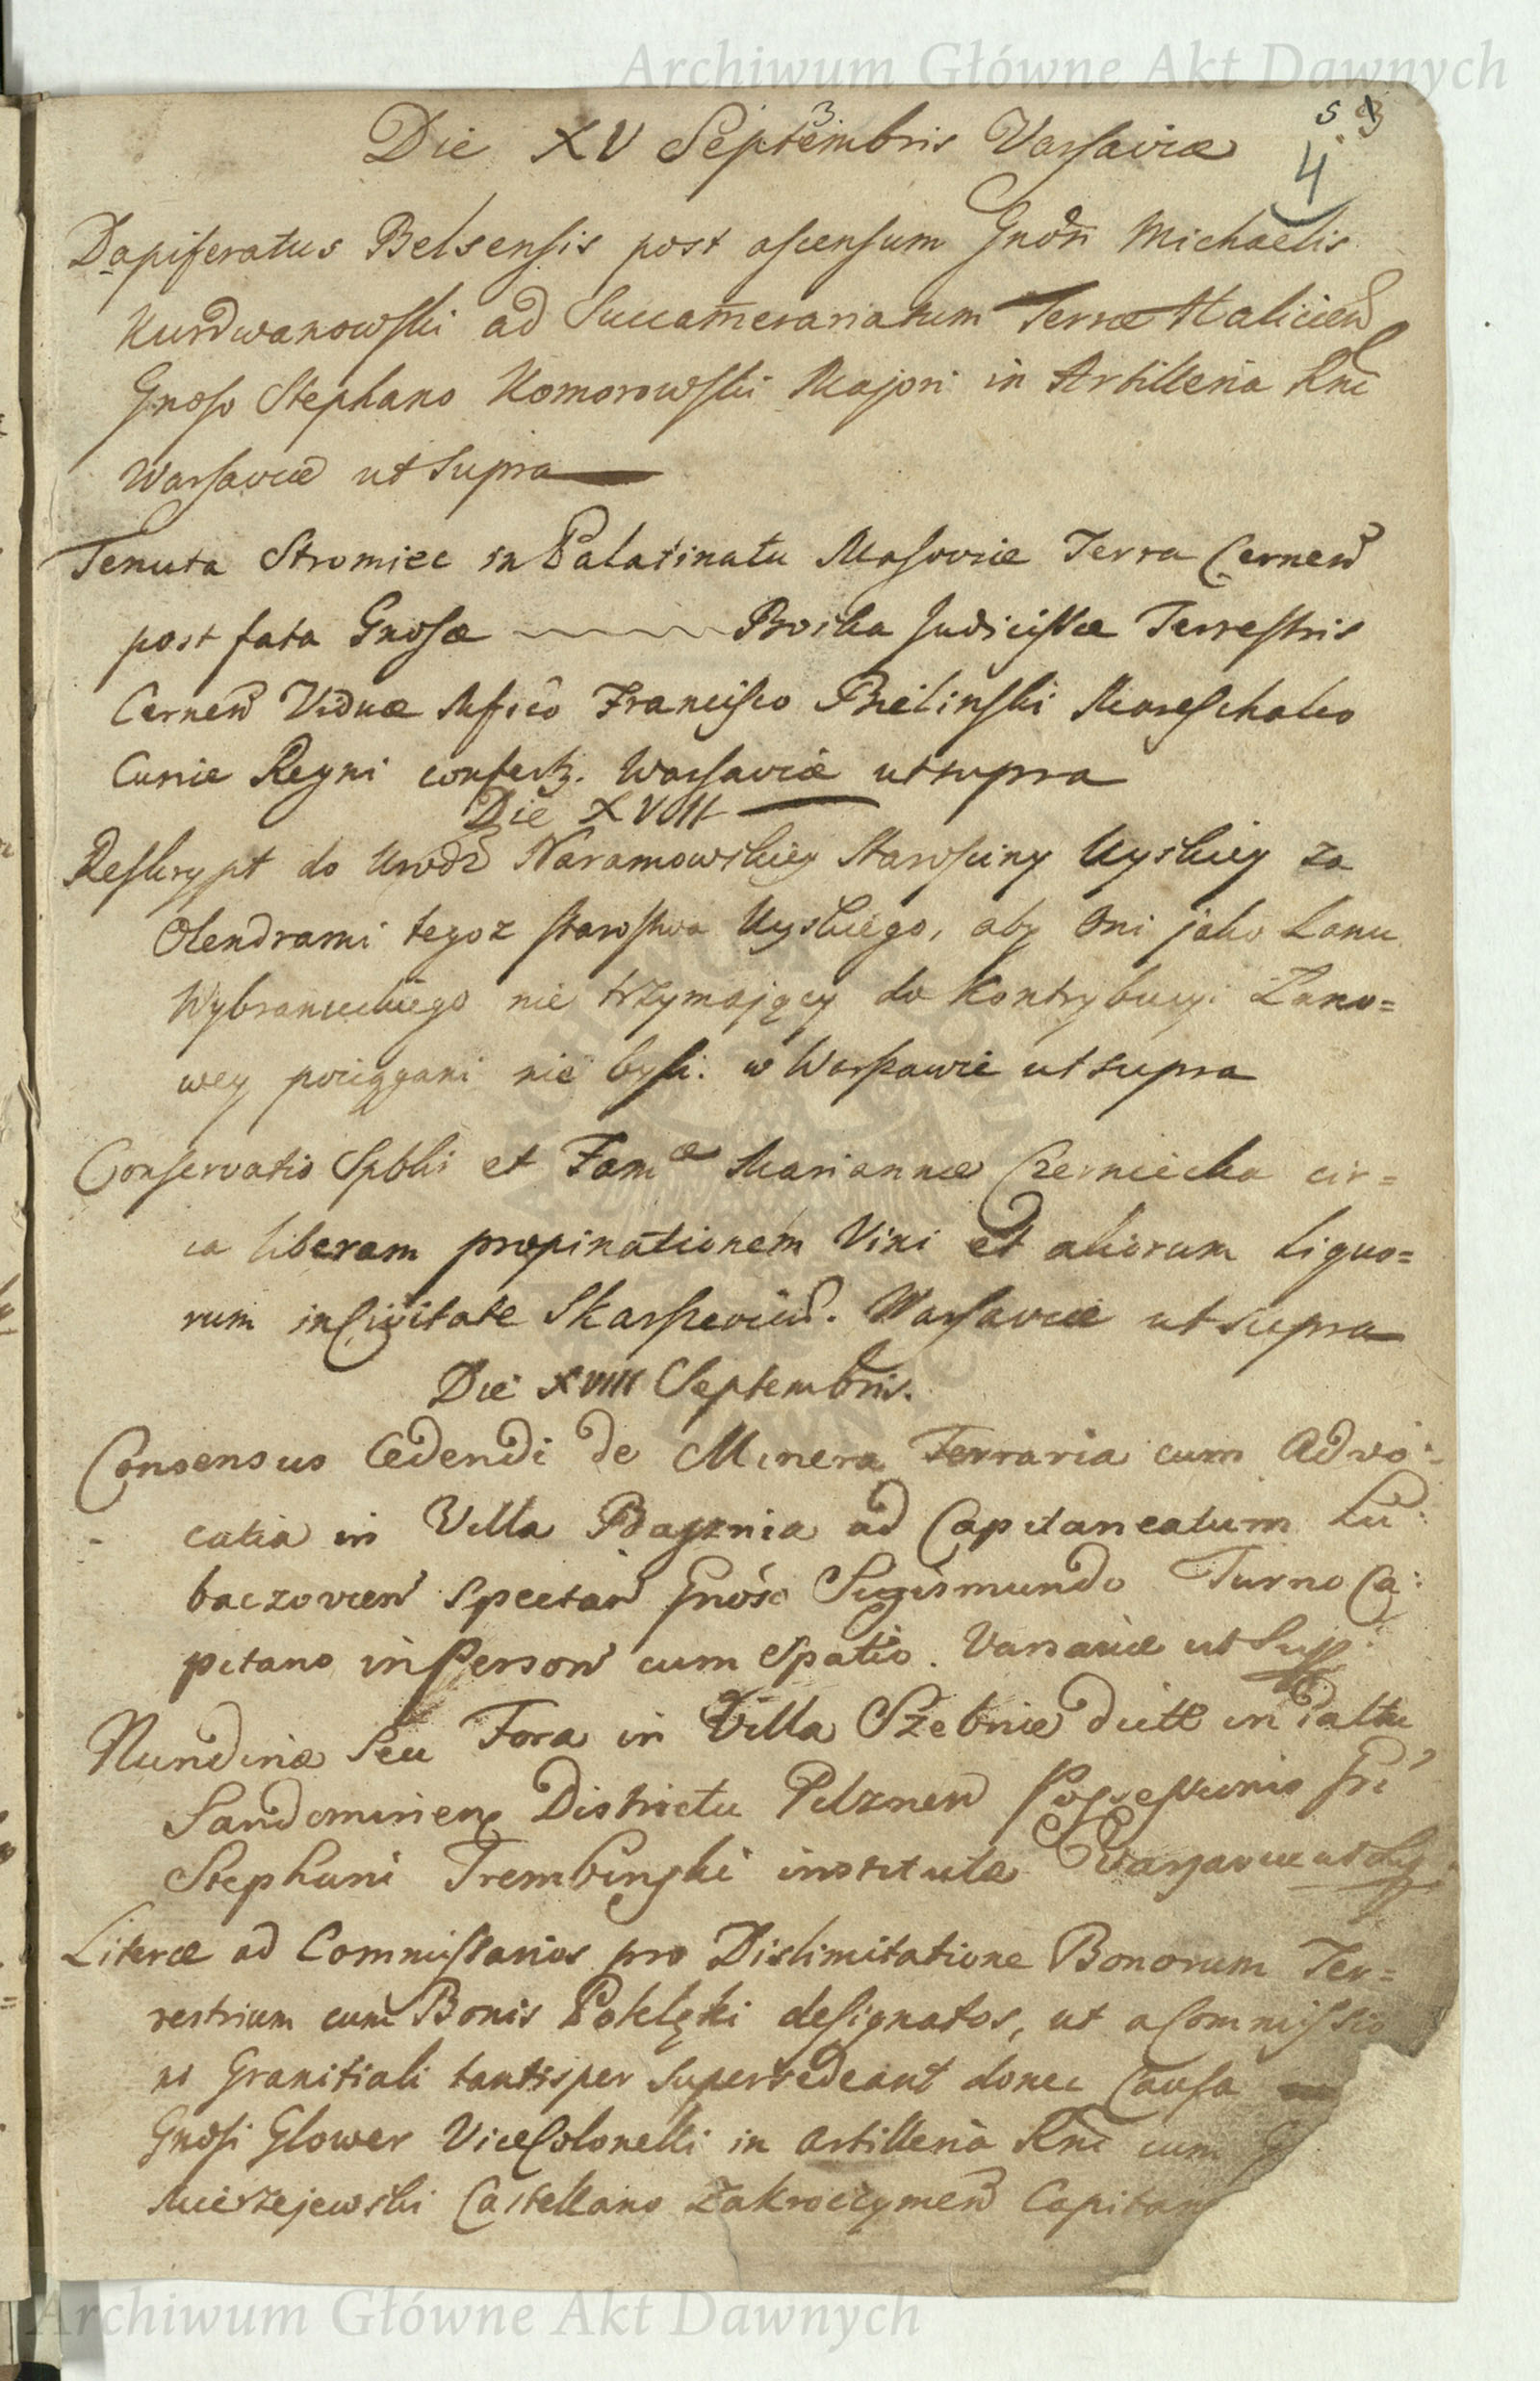 Archiwum Główne Akt Dawnych
5 3
3
4
Die XV Septembris Varsaviæ
Dapiferatus Belsensis post ascensum Gnosi Michaelis
Kurdwanowski ad Succamerariatum Terræ Halicien
Gnoso Stephano Komorowski Majori in Artilleria Rni
Warsaviæ ut supra
Tenuta Stromiec in Palatinatu Masoviæ Terra Cernen
post fata Gnosæ Boska Judicissæ Terrestris
Cernen Viduæ Mfico Francisco Bielinski Mareschalco
Curiæ Regni confertz. Warsaviæ ut supra
Die XVII
Reskrypt do Urodz Naramowskiey Starosciny Uyskiey za
Olendrami tegoz starostwa Uyskiego, aby oni jako Lanu
Wybranieckiego nie trzymaiący do kontrybucyi Lano=
wey pociągani nie byli. w Warszawie ut supra
Conservatio Spblis et Famæ Mariannæ Czerniecka cir=
ca liberam propinationem Vini et aliorum liquo=
rum in Civitate Skarszevien. Warsaviæ ut supra
Die XVIII Septembris.
Consensus Cedendi de Minera Ferraria cum Advo:
catia in Villa ad Capitaneatum Lu:
baczovien Spectan Gnoso Sigismundo Turno Ca:
pitano in Person cum Spatio. Varsaviæ ut Sup:
Nundinæ Seu Fora in Villa Szebnie dictæ in Paltu
Sandomirien Districtu Pilznen Possessionis Gsi
Stephani Trembinski institutæ Varsaviæ ut Sup
Literæ ad Commissarios pro Dislimitatione Bonorum Ter=
restrium cum Bonis designatos, ut a Commissio
ni Granitiali tantisper supersedeant donec Causa
Gnosi Glower ViceColonelli in Artilleria Rni cum G
Mierzejewski Castellano Zakroczymen Capitan
Archiwum Główne Akt Dawnych